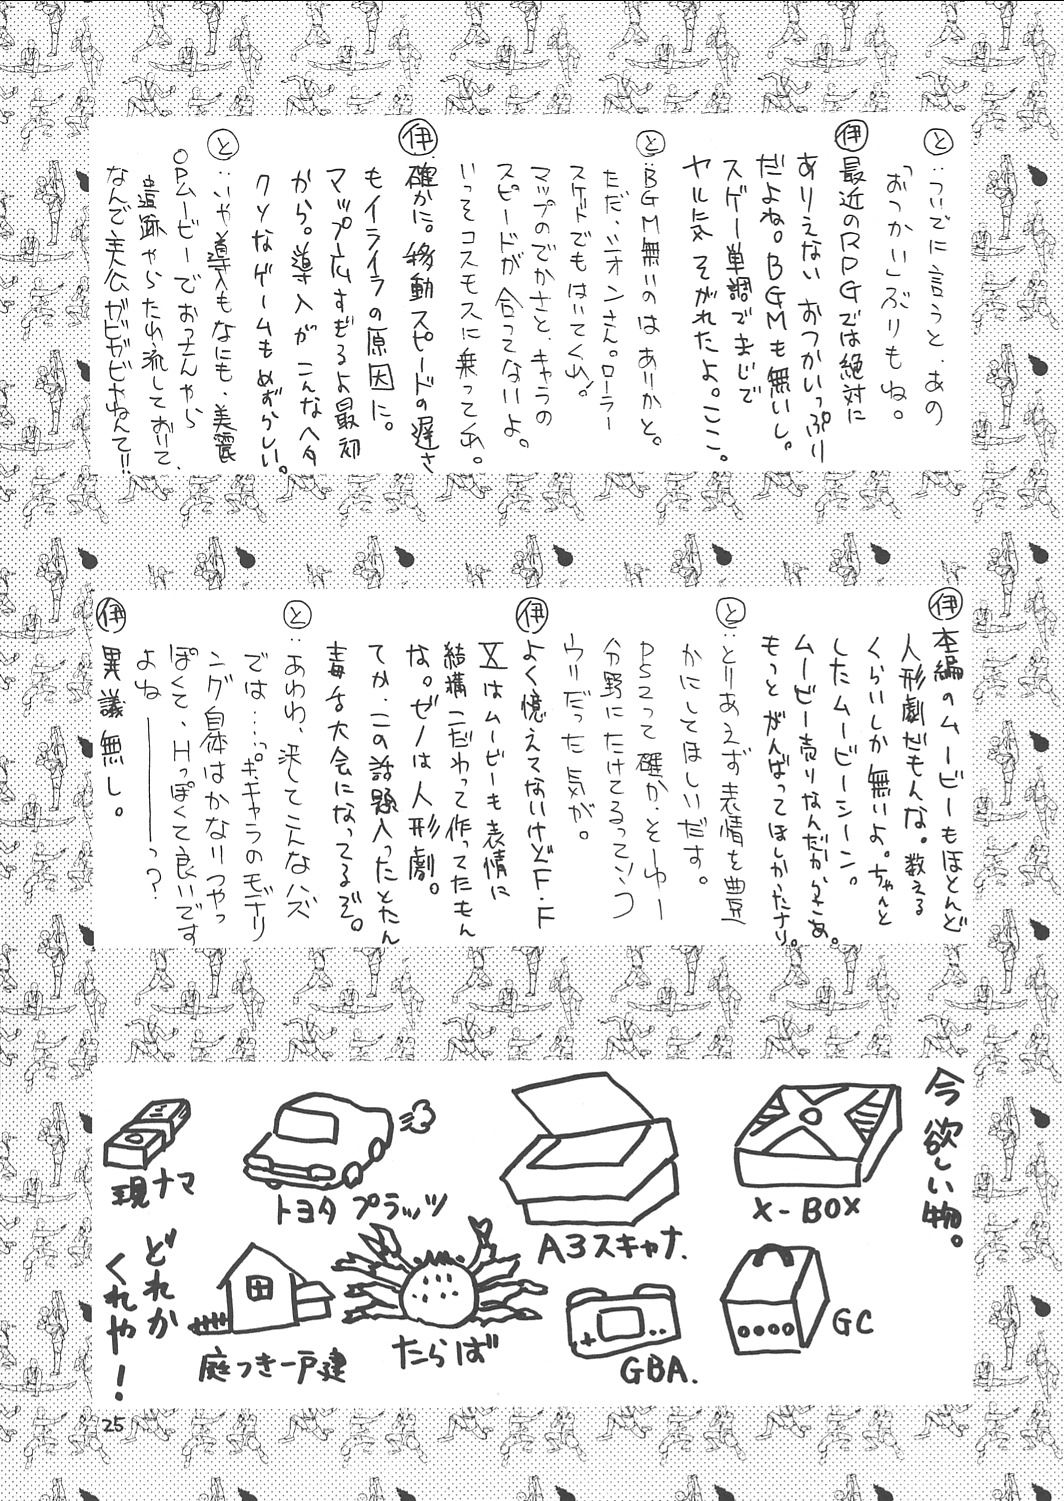 と:ついでに言うと、あの
「おつかい」ぶりもね。
伊 最近のRPGでは絶対に
ありえない おつかいっぷり
だよね。BGMも無いし。
スゲー単調でまじで
ヤル気 そがれたよ。ここ。
と:BGM無いのは ありかと。
ただ、シオンさん。ローラー
スケートでもはいてくれ!
マップのでかさと、キャラの
スピードが 合ってないよ。
いっそコスモスに乗ってくれ。
伊 確かに。移動スピードの遅さ
もイライラの原因に。
マップ広すぎるよ最初
から。導入が こんなヘタ
クソなゲームもめずらしい。
と:いや導入もなにも、美麗
OPムービーでおっさんやら
遺跡やらたれ流しておいて、
なんで主人公がビビビやねんて!!
伊 本編のムービーもほとんど
人形劇だもんな。数える
くらいしか無いよ。ちゃんと
したムービーシーン。
ムービー売りなんだからさぁ。
もっとがんばってほしかったナリ。
と:とりあえず表情を豊
かにしてほしいだす。
PS2って確か、そーゆー
分野にたけてるっていう
ウリだった気が。
伊 よく憶えてないけどF・F
Xはムービーも表情に
結構こだわって作ってたもん
な。ゼノは人形劇。
てか、この話題入ったとたん
毒舌大会になってるぞ。
と:あわわ、決してこんなハズ
では…。キャラのモデリ
ング自体はかなりつやっ
ぽくて、Hっぽくて良いです
よね――――っ?
伊 異議無し。
今欲しい物。
X-BOX
A3スキャナ.
トヨタ プラッツ
現ナマ
GC
GBA.
たらば
庭つき一戸建
どれか
くれや!
25